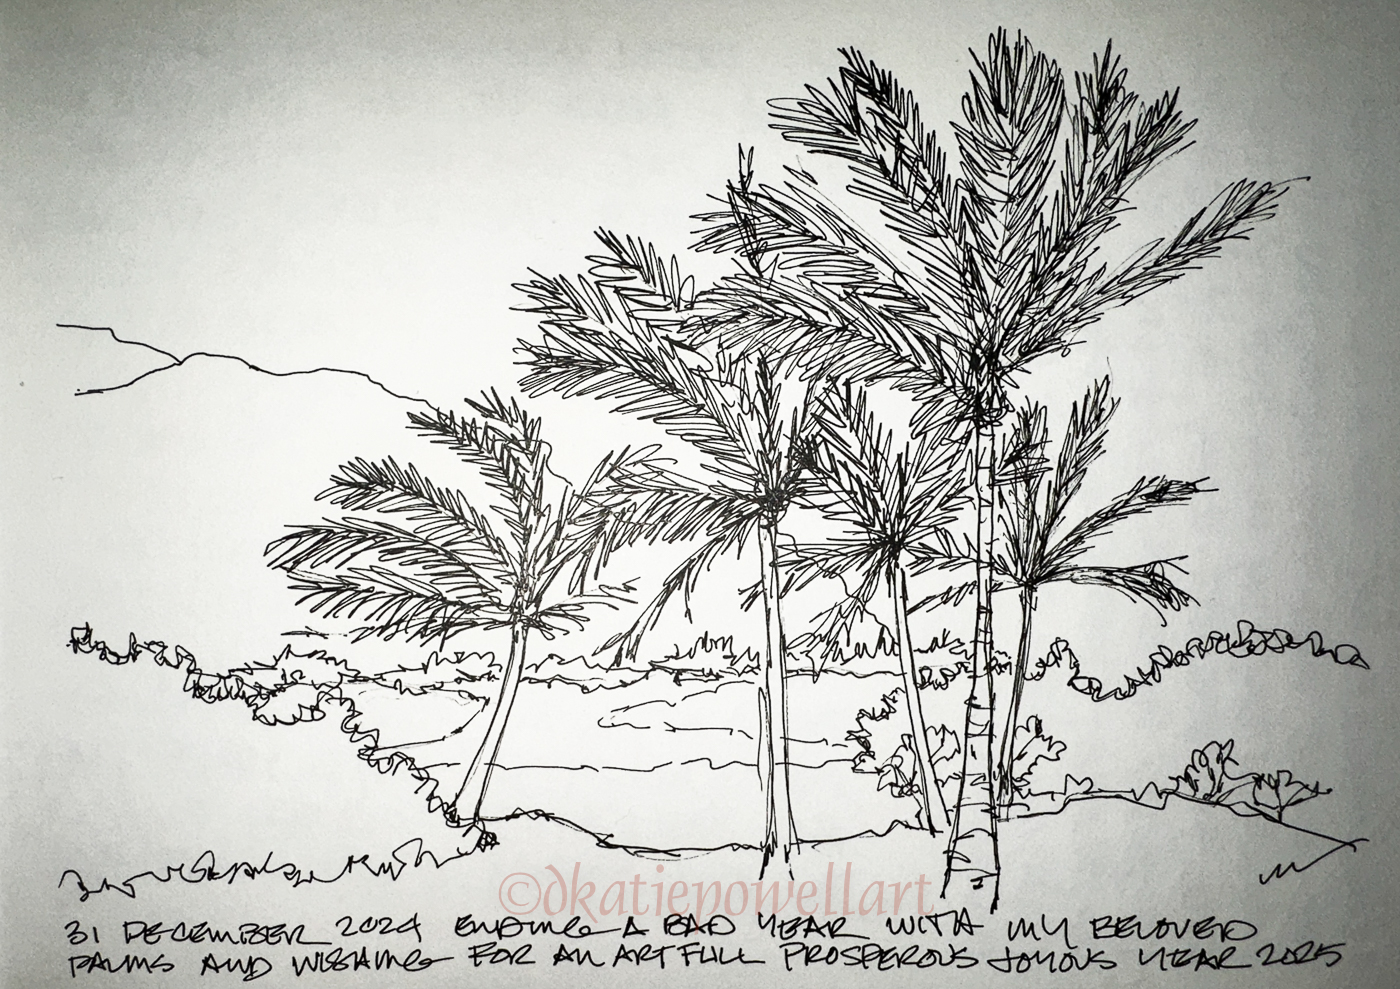 ©dkatiepowellart
31 DECEMBER 2024 ENDING A BAD YEAR WITH MY BELOVED
PALMS AND WISHING FOR AN ARTFULL PROSPEROUS JOYOUS YEAR 2025